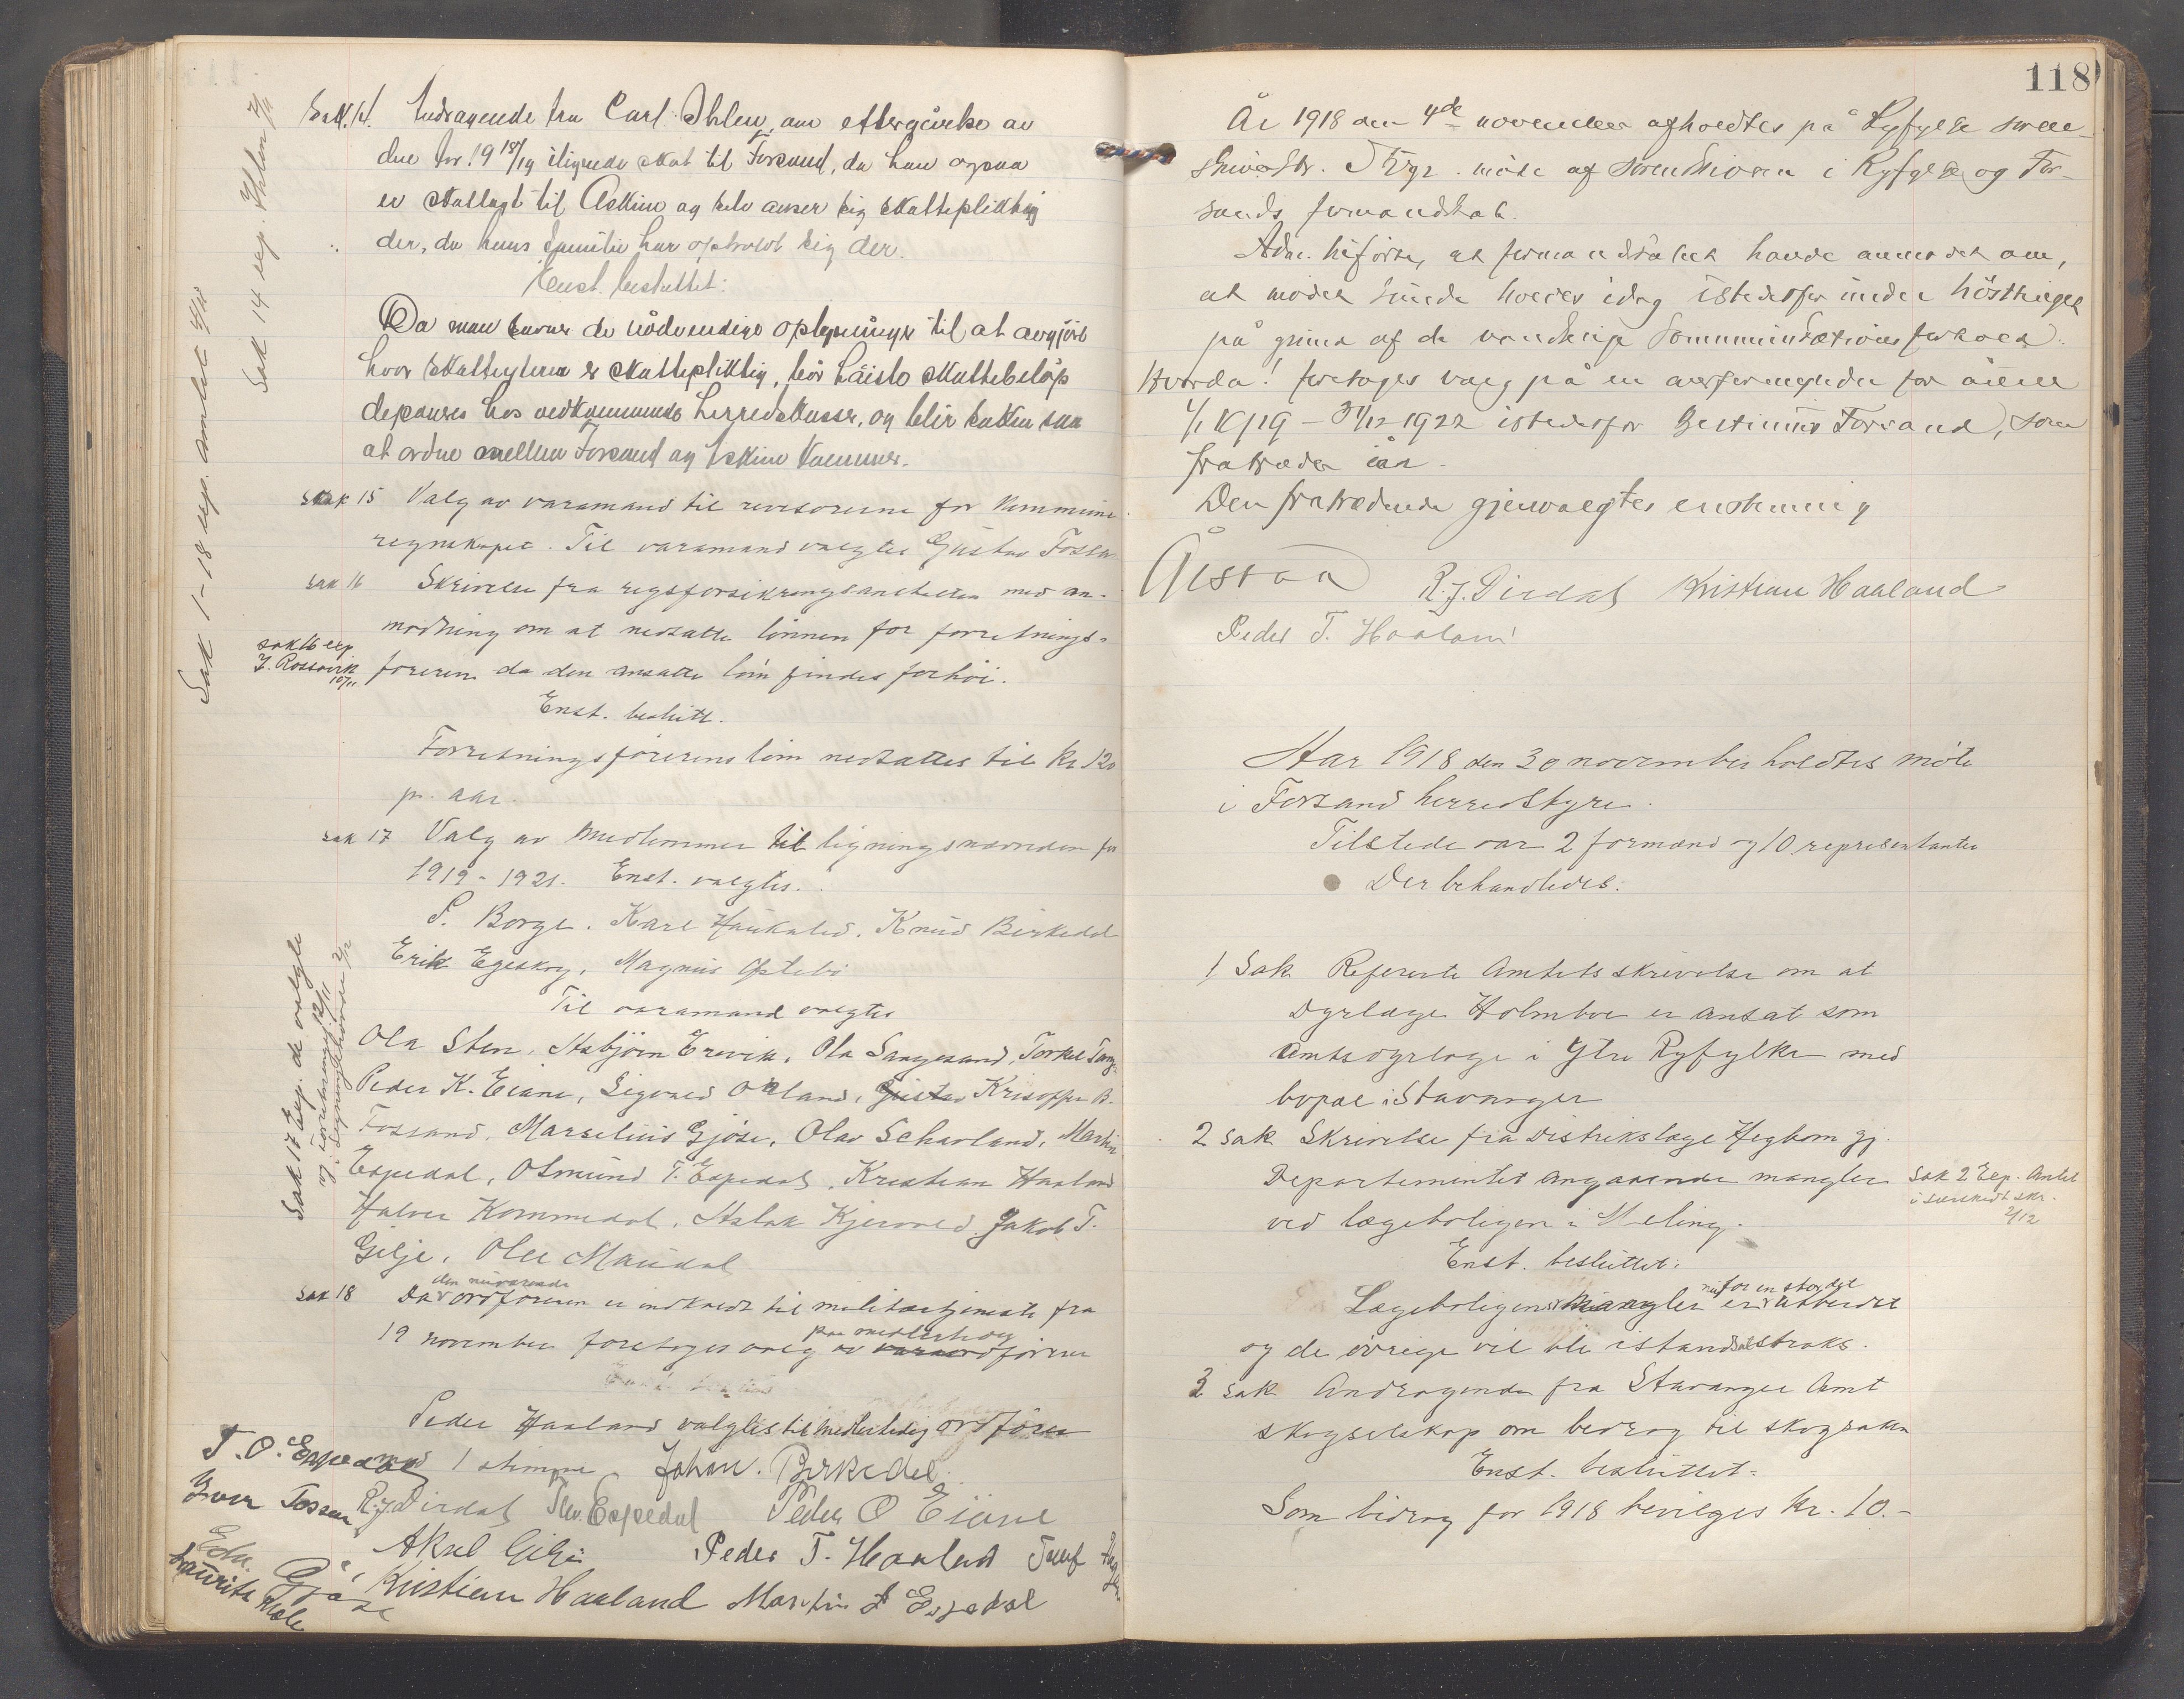 Sak 14. Andragende fra Carl Ihlen, om eftergivelse av
den for 1918/19 ilignede skat til Forsand, da han ogsaa
er skatlagt til Askim og selv anser sig skattepliktig
der, da hans familie har opholdt sig der.
Enst. besluttet:
Da man savner de nødvendige oplysninger til at avgjøre
hvor skatteyteren er skattepliktig, bør hans skattebeløp
deponeres hos vedkommende herredskasse, og blir saken saa
at ordne mellem Forsand og Askim kommuner.
Sak 15 Valg av varamand til revisorerne for kommune
regnskapet. Til varamand valgtes Gustav Fossan
Sak 16 Skrivelse fra rigsforsikringsanstalten med an-
modning om at nedsætte lønnen for forretnings-
føreren da den ansatte løn findes for høi.
Enst. beslutt.
Forretningsførerens løn nedsættes til Kr 120
pr. aar.
Sak 17 Valg av medlemmer til ligningsnævnden for
1919-1921. Enst. valgtes.
S. Borge. Karl Haukalid. Knud Birkedal
Erik Egeskog, Magnus Oftebø
Til varamænd valgtes
Ola Sten, Asbjörn Erevik, Ola Sangesand, Torkel
Peder K. Eiane, Sigvald Oaland, Gustav Kristoffer B.
Fossand, Marselius Gjøse, Olav Schavland, Martin
Espedal, Osmund T. Espedal, Kristian Haaland
Halvor Kommedal, Aslak Kjervold, Jakob T.
Gilje, Ole Maudal
den nuværende
Sak 18 Da ordføreren er indkaldt til militærtjeneste fra
paa midlertidig
19 november foretoges valg av varaordfører
Peder Haaland valgtes til midlertidig ordfører
T. O. Espedal med 1 stemme Johan. Birkedal.
Iver Fossan R. J. Dirdal Espedal Peder O Eiane
Aksel Gilje Peder T. Haaland
Gjøse Kristian Haaland Martin Espedal
Lauritz Mæle
Sak 1-18 exp. amtet
Sak 14 exp. Ihlen
sak 16 exp
J. Rossavik
10/11
Sak 17 Exp. de valgte
12/11
118
År 1918 den 4de november afholdtes på Ryfylke soren-
skriverktr. Styr. møte af sorenskriveren i Ryfylke og For-
sands formandskab.
Adm. tilførte, at formandskabet havde anmodet om,
at mødet kunde holdes idag istedetfor under høsttinget
på grund af de vanskelige kommunikationsforhold.
Hvorda! foretoges valg på en overformynder for årene
1/1 1919 – 31/12 1922 istedetfor Forsand, som
fratræder iår.
Den fratrædende gjenvalgtes enstemmig
R. J. Dirdal Kristian Haaland
Peder T. Haaland
Aar 1918 den 30 november holdtes møte
i Forsand herredstyre.
Tilstede var 2 formænd og 10 representanter
Der behandledes:
1 Sak Refererte Amtets skrivelse om at
Dyrlæge Holmboe er ansat som
amtsdyrlæge i Ytre Ryfylke med
bopæl i Stavanger
2 sak Skrivelse fra Distrikslæge Hegbom gj.
Departementet angaaende mangler
ved lægeboligen i Meling.
Enst. besluttet:
nu for en stor del
Lægeboligens mangler er utbedret
og de øvrige vil bli istandsat straks.
Sak 2 Exp. Amtet
i særskilt skr.
2/12
3 sak Andragende fra Stavanger Amt
skogselskap om bidrag til skogsaken
Enst. besluttet:
Som bidrag for 1918 bevilges Kr. 10.-